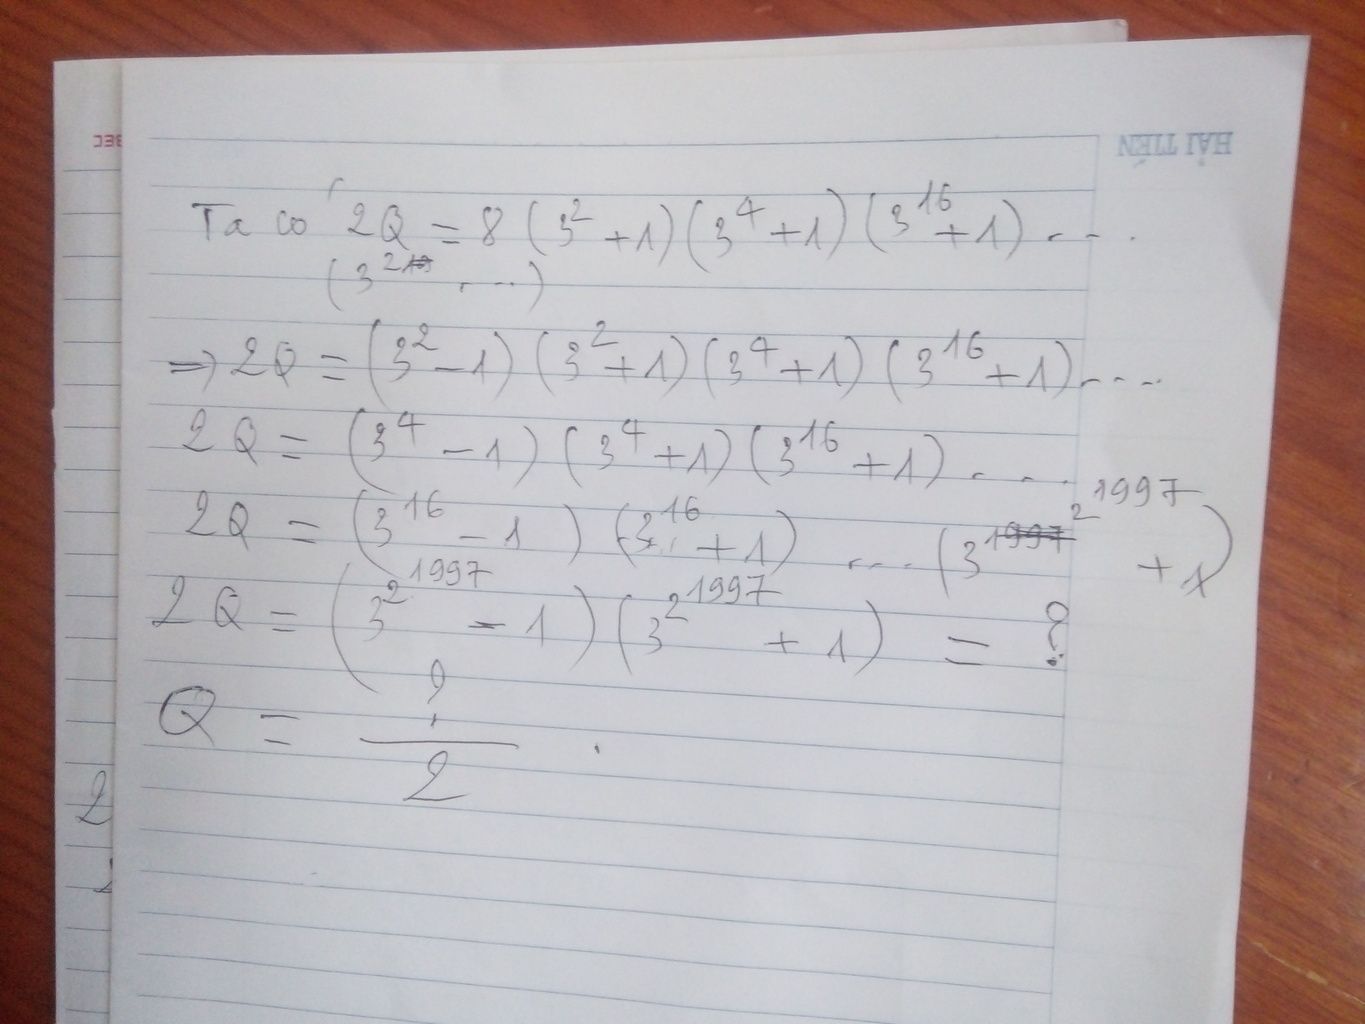 HẢI TIẾN
Ta có 2Q = 8 (3² + 1) (3⁴ + 1) (3¹⁶ + 1) ....
(3² ....)
=> 2Q = (3² - 1) (3² + 1) (3⁴ + 1) (3¹⁶ + 1) ....
2Q = (3⁴ - 1) (3⁴ + 1) (3¹⁶ + 1) ....
2Q = (3¹⁶ - 1) (3¹⁶ + 1) .... (3^2^1997 + 1)
2Q = (3^2^1997 - 1) (3^2^1997 + 1) = ?
Q = ?/2 .